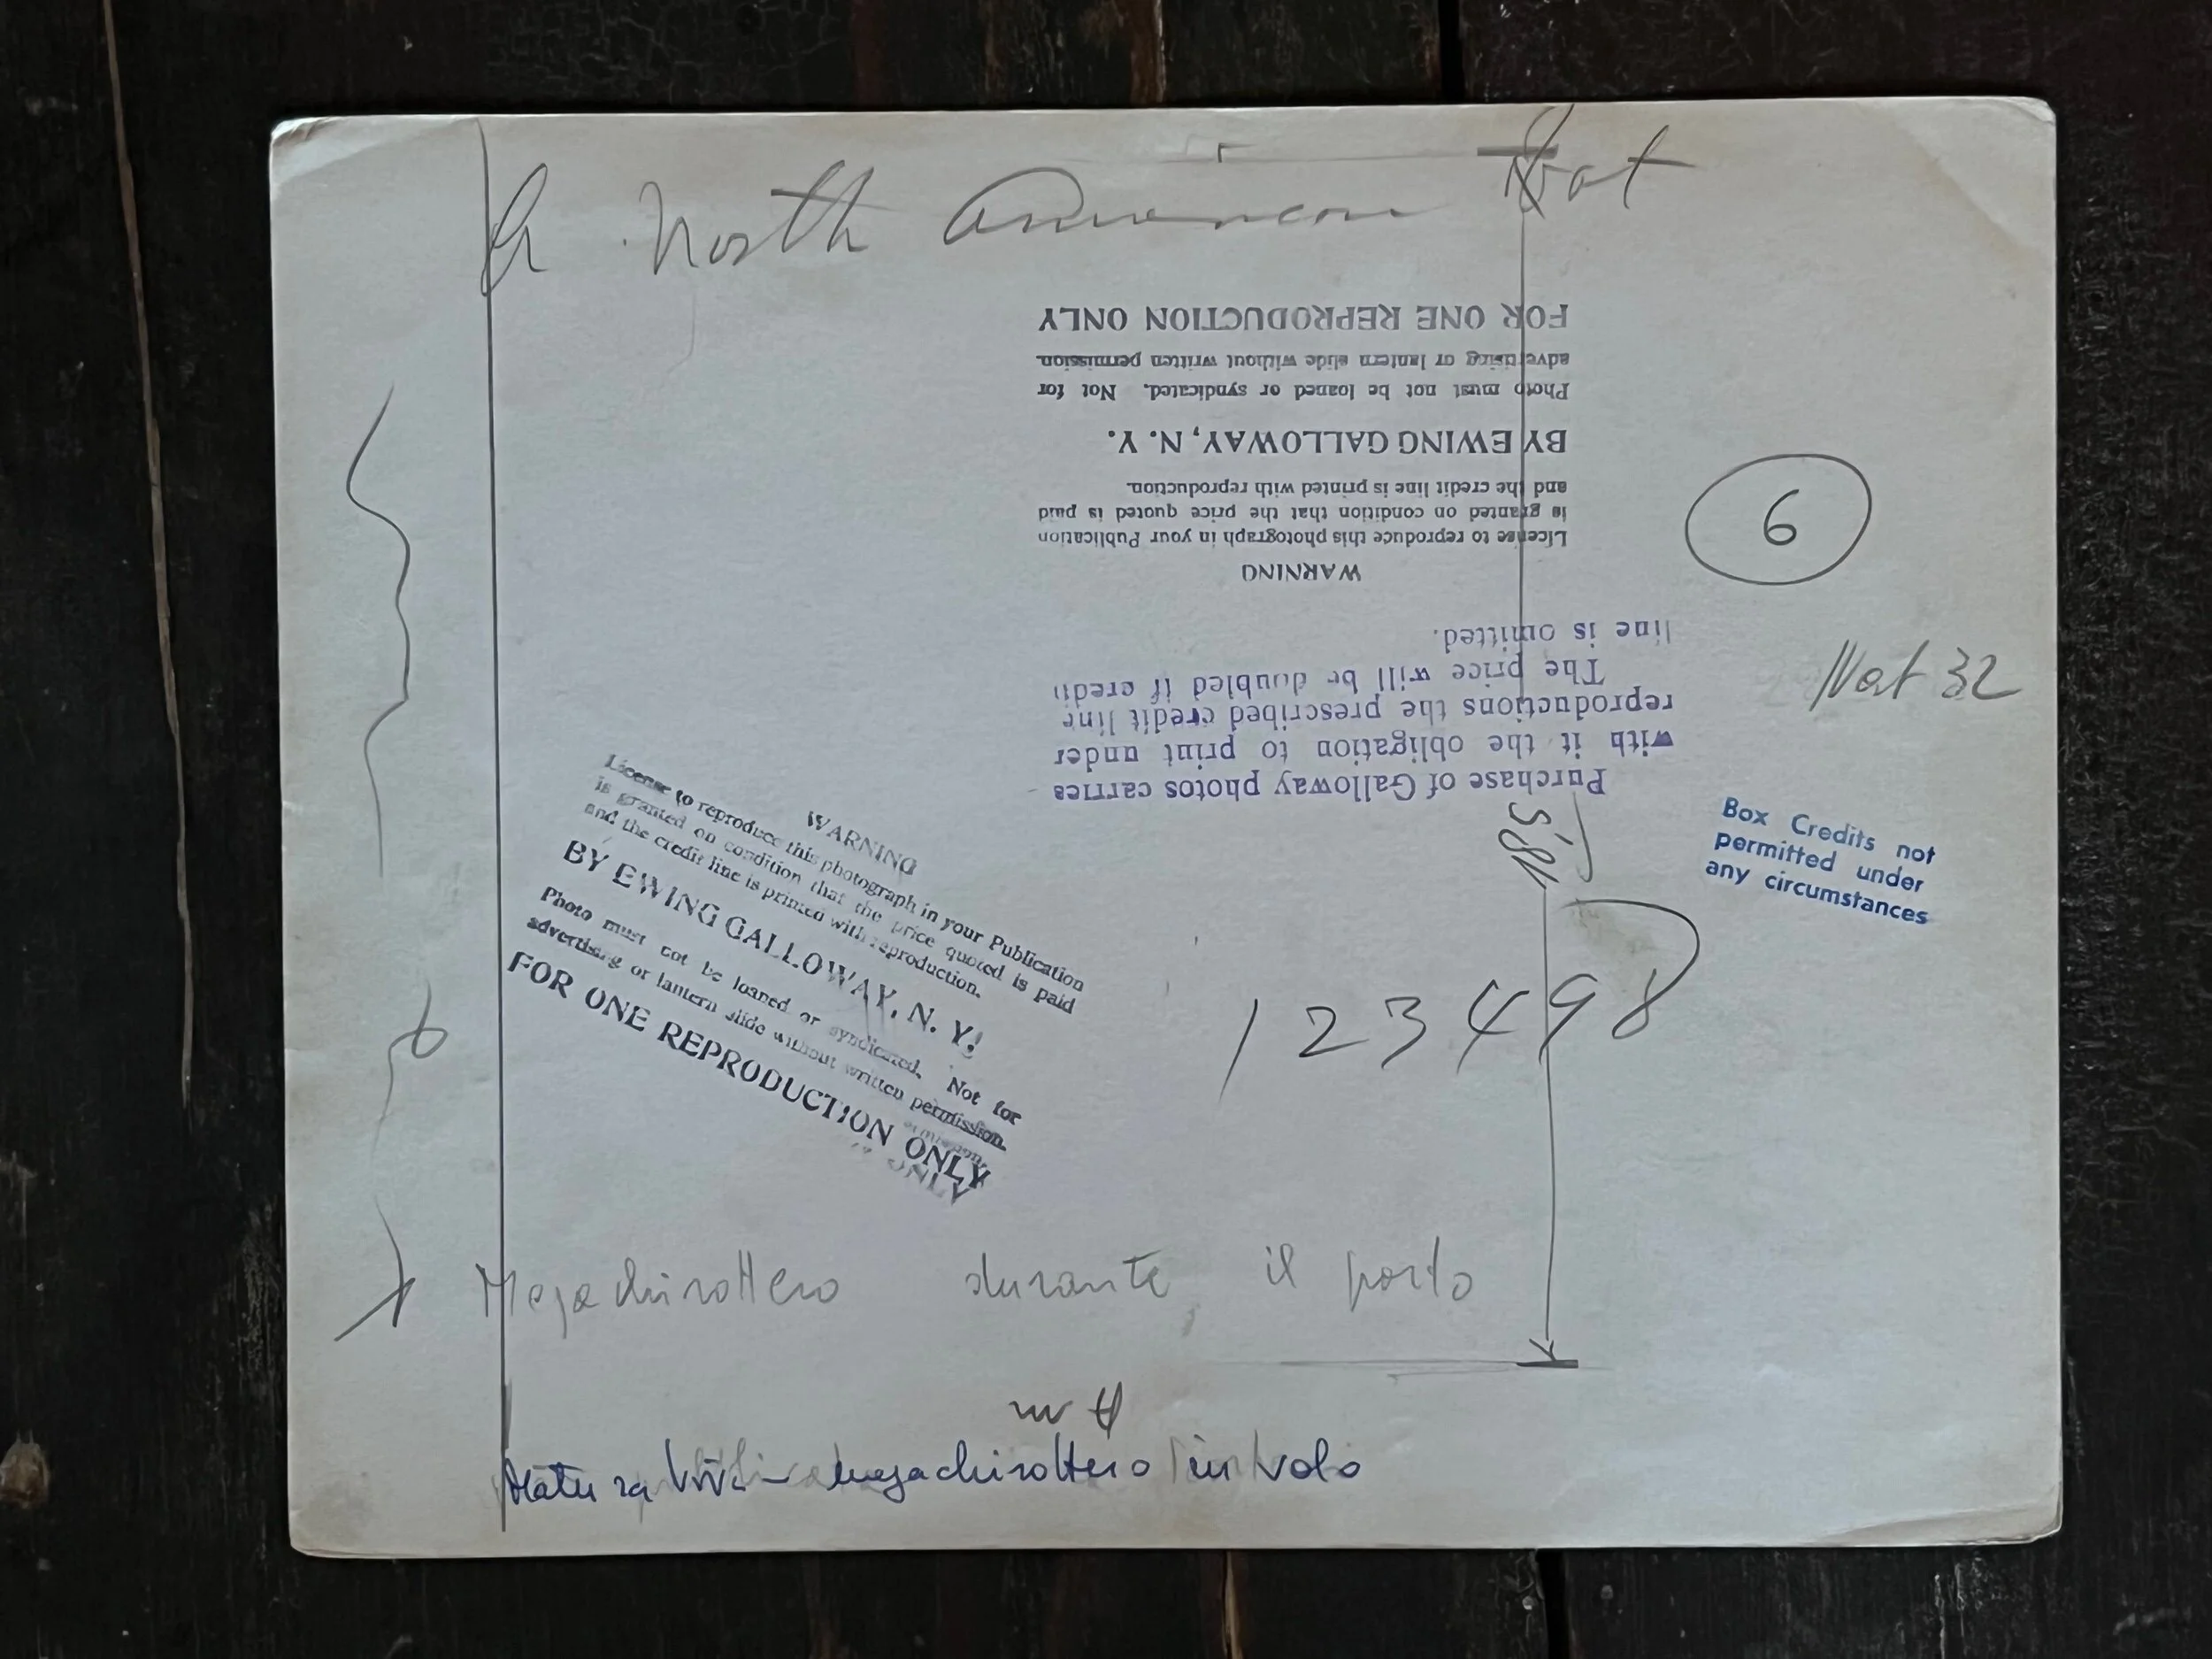 A North American Bat
FOR ONE REPRODUCTION ONLY
advertising or lantern slide without written permission.
Photo must not be loaned or syndicated. Not for
BY EWING GALLOWAY, N. Y.
and the credit line is printed with reproduction.
is granted on condition that the price quoted is paid
License to reproduce this photograph in your Publication
WARNING
6
line is omitted.
The price will be doubled if credit
reproductions the prescribed credit line
with it the obligation to print under
Purchase of Galloway photos carries
Nat 32
Box Credits not
permitted under
any circumstances
WARNING
License to reproduce this photograph in your Publication
is granted on condition that the price quoted is paid
and the credit line is printed with reproduction.
BY EWING GALLOWAY, N. Y.
Photo must not be loaned or syndicated. Not for
advertising or lantern slide without written permission.
FOR ONE REPRODUCTION ONLY
ONLY
123498
Megachirottero durante il parto
Natura viva - megachirottero in volo